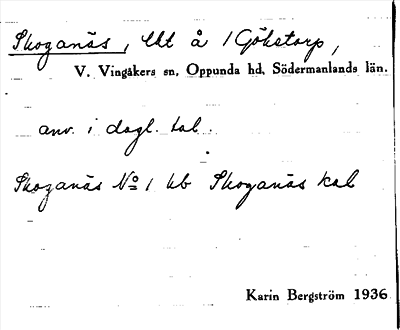 Skoganäs, lht å 1 Gökstorp,
V. Vingåkers sn, Oppunda hd, Södermanlands län.
anv. i dagl. tal.
Skoganäs No 1 kb Skoganäs kal
Karin Bergström 1936